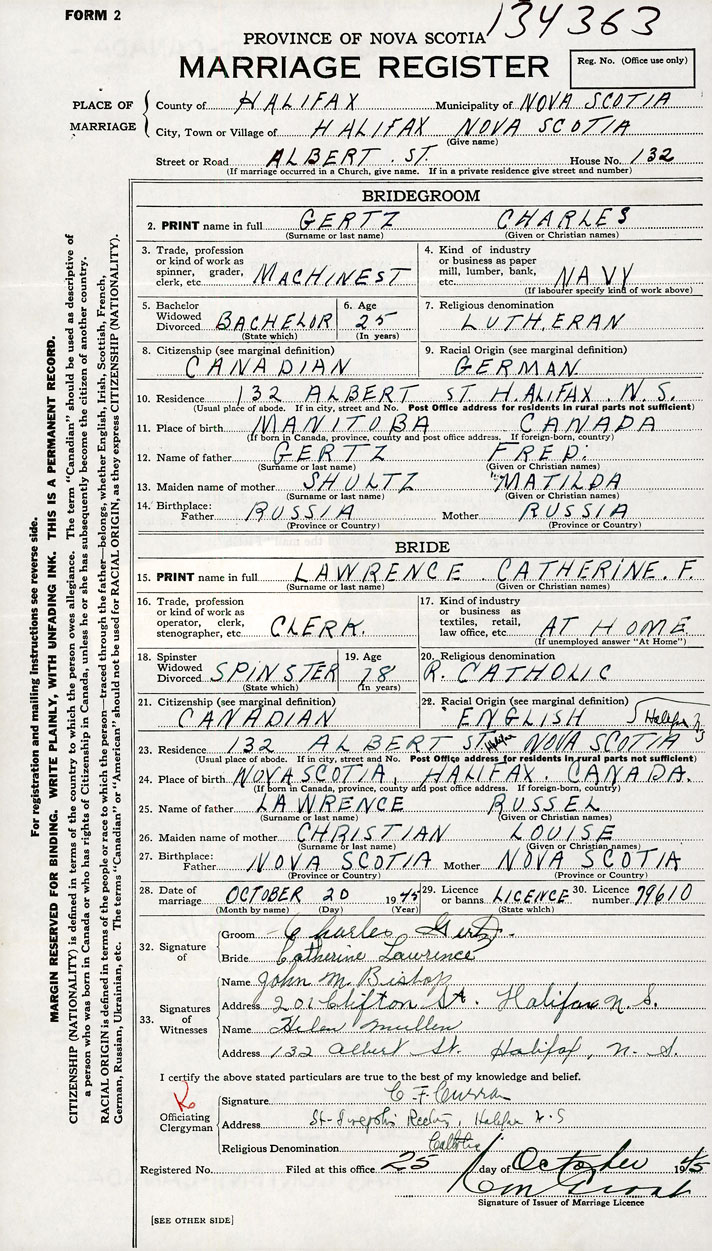 FORM 2
134363
PROVINCE OF NOVA SCOTIA
MARRIAGE REGISTER
Reg. No. (Office use only)
PLACE OF MARRIAGE
County of HALIFAX Municipality of NOVA SCOTIA
City, Town or Village of HALIFAX NOVA SCOTIA
(Give name)
Street or Road ALBERT ST. House No. 132
(If marriage occurred in a Church, give name. If in a private residence give street and number)
BRIDEGROOM
2. PRINT name in full GERTZ CHARLES
(Surname or last name) (Given or Christian names)
3. Trade, profession or kind of work as spinner, grader, clerk, etc. MACHINEST
4. Kind of industry or business as paper mill, lumber, bank, etc. NAVY
(If labourer specify kind of work above)
5. Bachelor Widowed Divorced BACHELOR
(State which)
6. Age 25
(In years)
7. Religious denomination
LUTHERAN
8. Citizenship (see marginal definition)
CANADIAN
9. Racial Origin (see marginal definition)
GERMAN
10. Residence 132 ALBERT ST. HALIFAX. N.S.
(Usual place of abode. If in city, street and No. Post Office address for residents in rural parts not sufficient)
11. Place of birth MANITOBA CANADA
(If born in Canada, province, county and post office address. If foreign-born, country)
12. Name of father GERTZ FRED.
(Surname or last name) (Given or Christian names)
13. Maiden name of mother SHULTZ MATILDA
(Surname or last name) (Given or Christian names)
14. Birthplace: Father RUSSIA Mother RUSSIA
(Province or Country) (Province or Country)
BRIDE
15. PRINT name in full LAWRENCE. CATHERINE. F.
(Surname or last name) (Given or Christian names)
16. Trade, profession or kind of work as operator, clerk, stenographer, etc. CLERK.
17. Kind of industry or business as textiles, retail, law office, etc. AT HOME
(If unemployed answer "At Home")
18. Spinster Widowed Divorced SPINSTER
(State which)
19. Age 18
(In years)
20. Religious denomination
R. CATHOLIC
21. Citizenship (see marginal definition)
CANADIAN
22. Racial Origin (see marginal definition)
ENGLISH Halifax
23. Residence 132 ALBERT ST. Halifax NOVA SCOTIA
(Usual place of abode. If in city, street and No. Post Office address for residents in rural parts not sufficient)
24. Place of birth NOVA SCOTIA, HALIFAX. CANADA.
(If born in Canada, province, county and post office address. If foreign-born, country)
25. Name of father LAWRENCE RUSSEL
(Surname or last name) (Given or Christian names)
26. Maiden name of mother CHRISTIAN LOUISE
(Surname or last name) (Given or Christian names)
27. Birthplace: Father NOVA SCOTIA Mother NOVA SCOTIA
(Province or Country) (Province or Country)
28. Date of marriage OCTOBER 20 1945
(Month by name) (Day) (Year)
29. Licence or banns LICENCE
(State which)
30. Licence number 79610
32. Signature of
Groom Charles Gertz.
Bride Catherine Lawrence
33. Signatures of Witnesses
Name John M. Bishop
Address 201 Clifton St. Halifax N.S.
Name Helen Mullen
Address 132 Albert St. Halifax, N.S.
I certify the above stated particulars are true to the best of my knowledge and belief.
Officiating Clergyman
Signature C F Curran
Address St. Joseph's Halifax N.S
Religious Denomination Catholic
Registered No. Filed at this office 25 day of October 1945
Signature of Issuer of Marriage Licence
[SEE OTHER SIDE]
For registration and mailing instructions see reverse side.
MARGIN RESERVED FOR BINDING. WRITE PLAINLY, WITH UNFADING INK. THIS IS A PERMANENT RECORD.
CITIZENSHIP (NATIONALITY) is defined in terms of the country to which the person owes allegiance. The term "Canadian" should be used as descriptive of
a person who was born in Canada or who has rights of Citizenship in Canada, unless he or she has subsequently become the citizen of another country.
RACIAL ORIGIN is defined in terms of the people or race to which the person—traced through the father—belongs, whether English, Irish, Scottish, French,
German, Russian, Ukrainian, etc. The terms "Canadian" or "American" should not be used for RACIAL ORIGIN, as they express CITIZENSHIP (NATIONALITY).